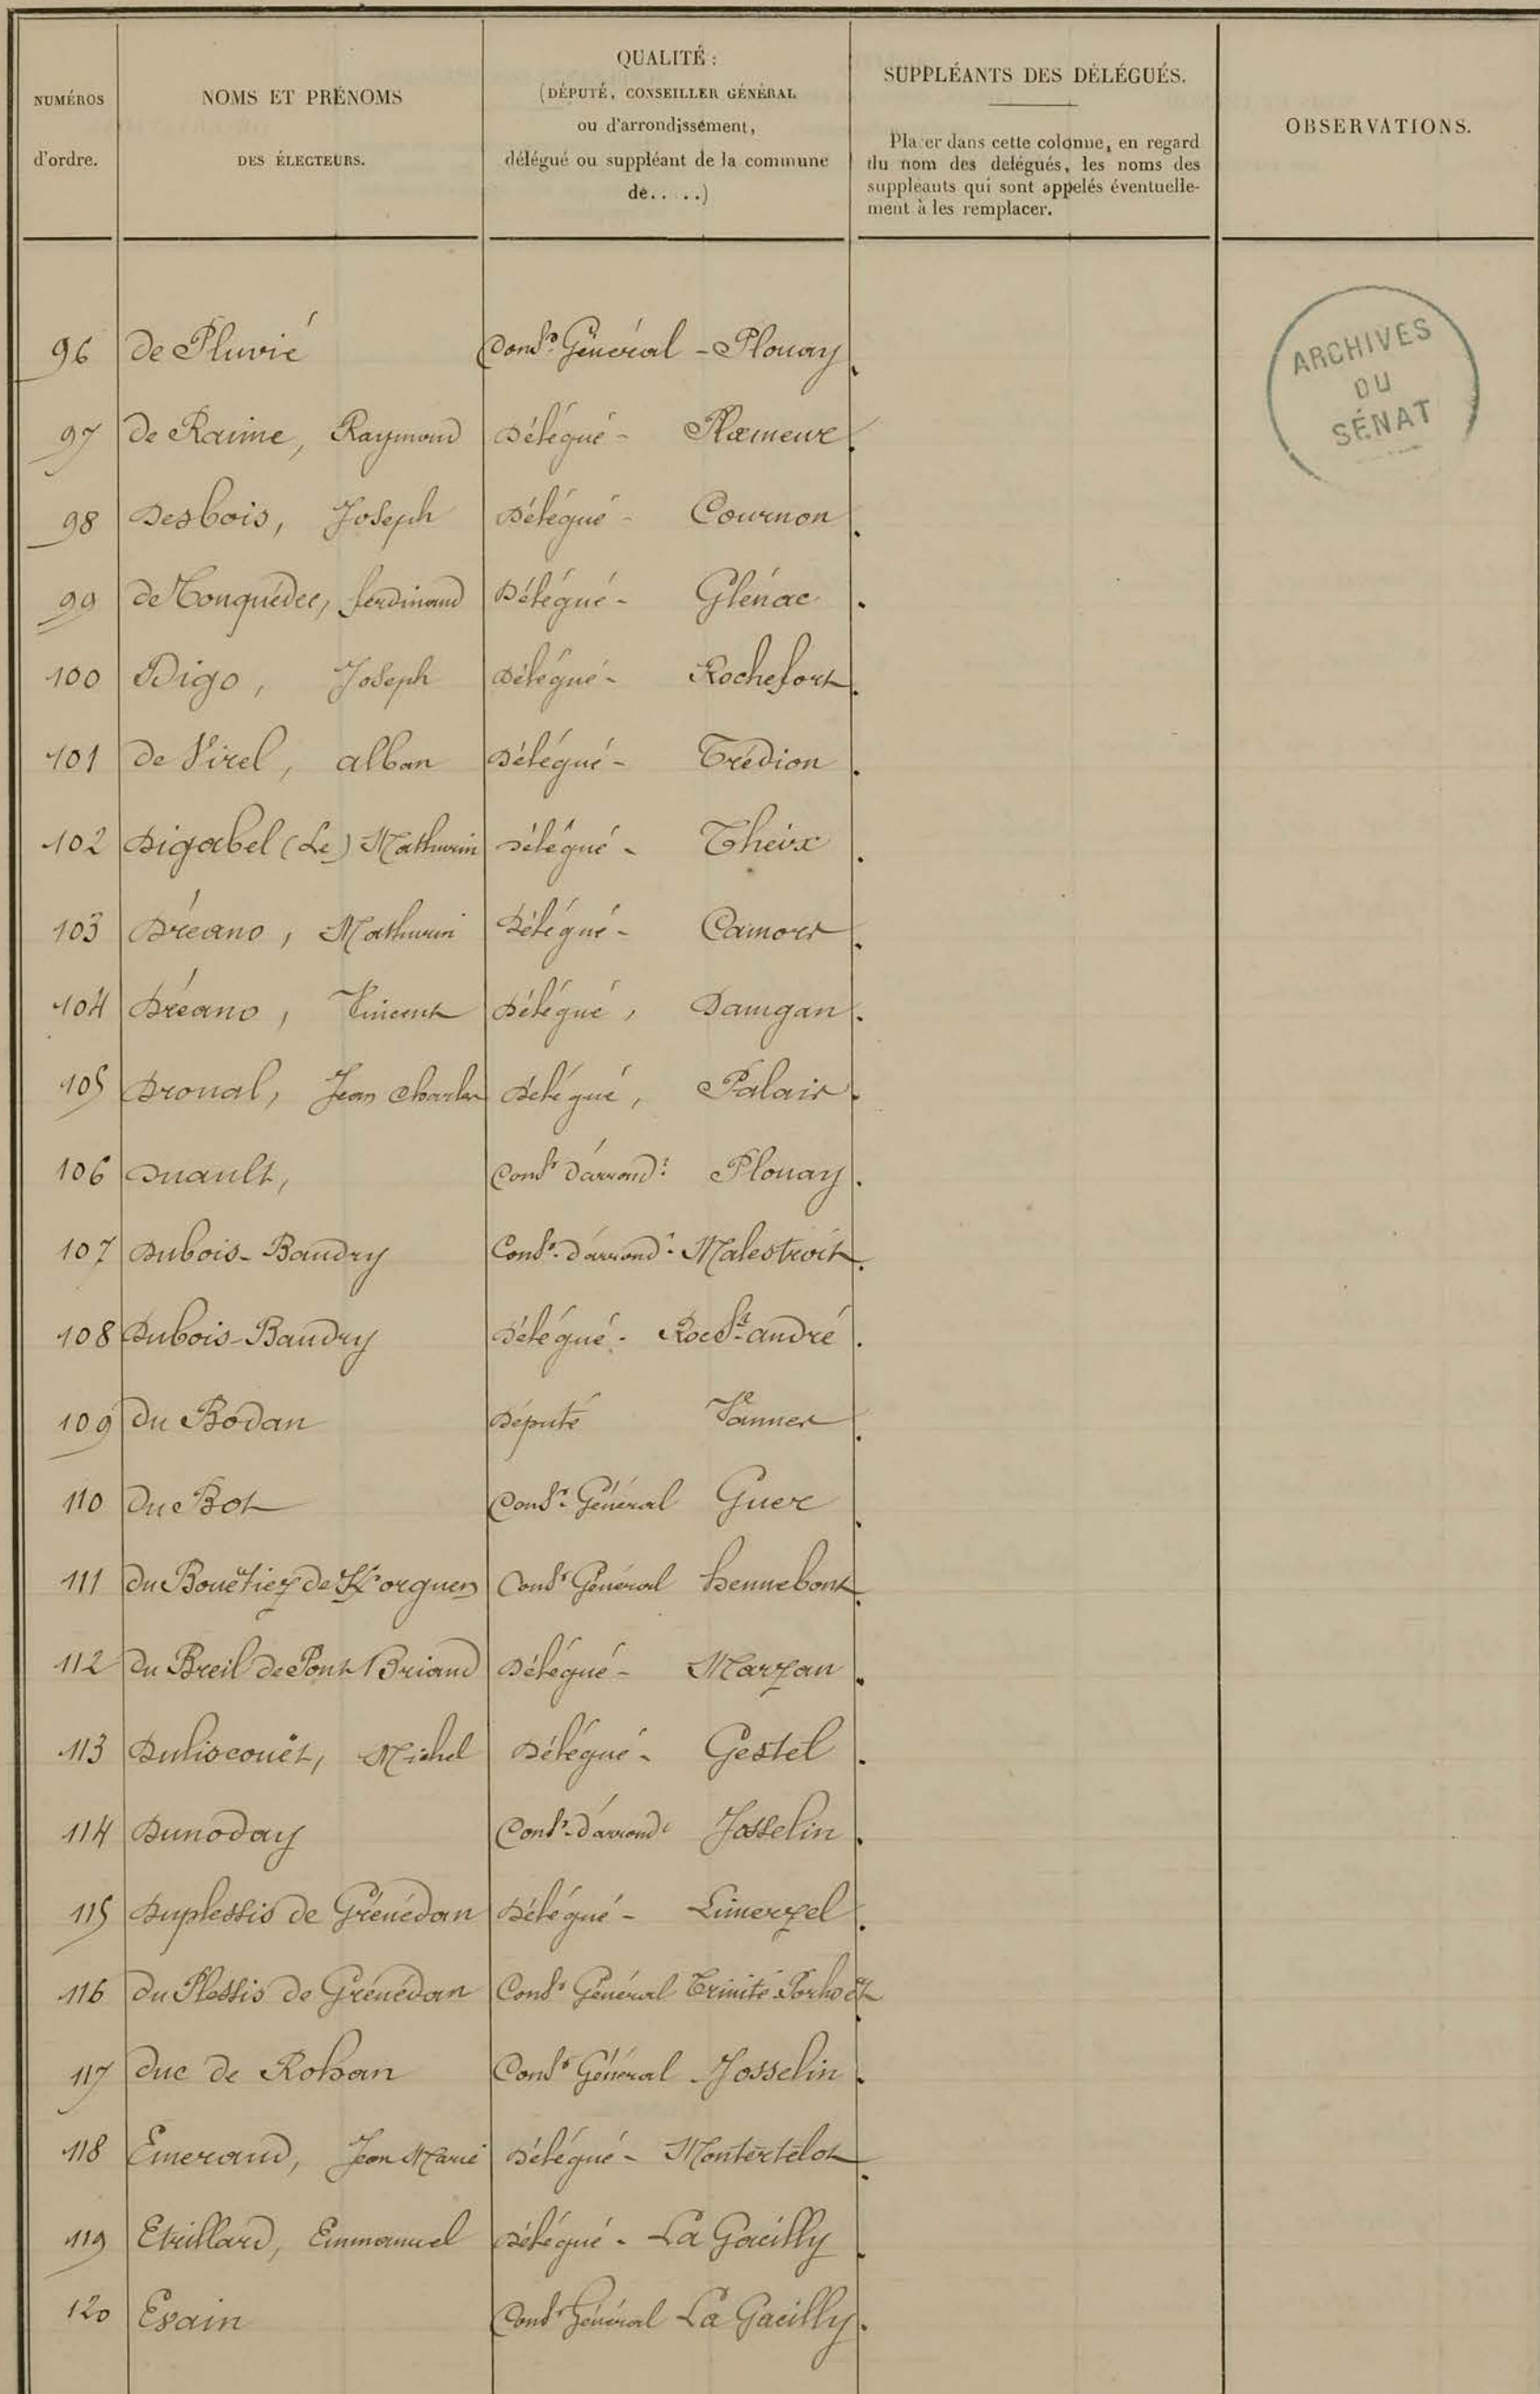 NUMÉROS
d'ordre.
NOMS ET PRÉNOMS
DES ÉLECTEURS.
QUALITÉ :
(DÉPUTÉ, CONSEILLER GÉNÉRAL
ou d'arrondissement,
délégué ou suppléant de la commune
de.....)
SUPPLÉANTS DES DÉLÉGUÉS.
Placer dans cette colonne, en regard
du nom des délégués, les noms des
suppléants qui sont appelés éventuelle-
ment à les remplacer.
OBSERVATIONS.
ARCHIVES
DU
SÉNAT
96 de Pluvié Cons.r Général - Plouay
97 de Raime, Raymond Délégué - Plœmeur
98 Desbois, Joseph Délégué - Cournon
99 de Tonquédec, ferdinand Délégué - Glénac
100 Digo, Joseph Délégué - Rochefort
101 de Virel, alban Délégué - Trédion
102 Digabel (Le) Mathurin Délégué - Theix
103 Dréano, Mathurin Délégué - Camors
104 Dréano, Vincent Délégué, Damgan
105 Dronal, Jean Charles Délégué, Palais
106 Duault, Cons.r d'arrond.t Plouay
107 Dubois-Baudry Cons.r d'arrond.t Malestroit
108 Dubois-Baudry Délégué - Roc St André
109 du Bodan Député Vannes
110 Du Bot Cons.r Général Guer
111 du Bouëtiez de K/orguen Cons.r Général hennebont
112 du Breil de Pont Briand Délégué - Marzan
113 Duliscouët, Michel Délégué - Gestel
114 Dunoday Cons.r d'arrond.t Josselin
115 Duplessis de Grénédan Délégué - Limerzel
116 du Plessis de Grénédan Cons.r Général Trinité Porhoët
117 duc de Rohan Cons.r Général Josselin
118 Emeraud, Jean Marie Délégué - Montertelot
119 Etrillard, Emmanuel Délégué - La Gacilly
120 Evain Cons.r Général La Gacilly